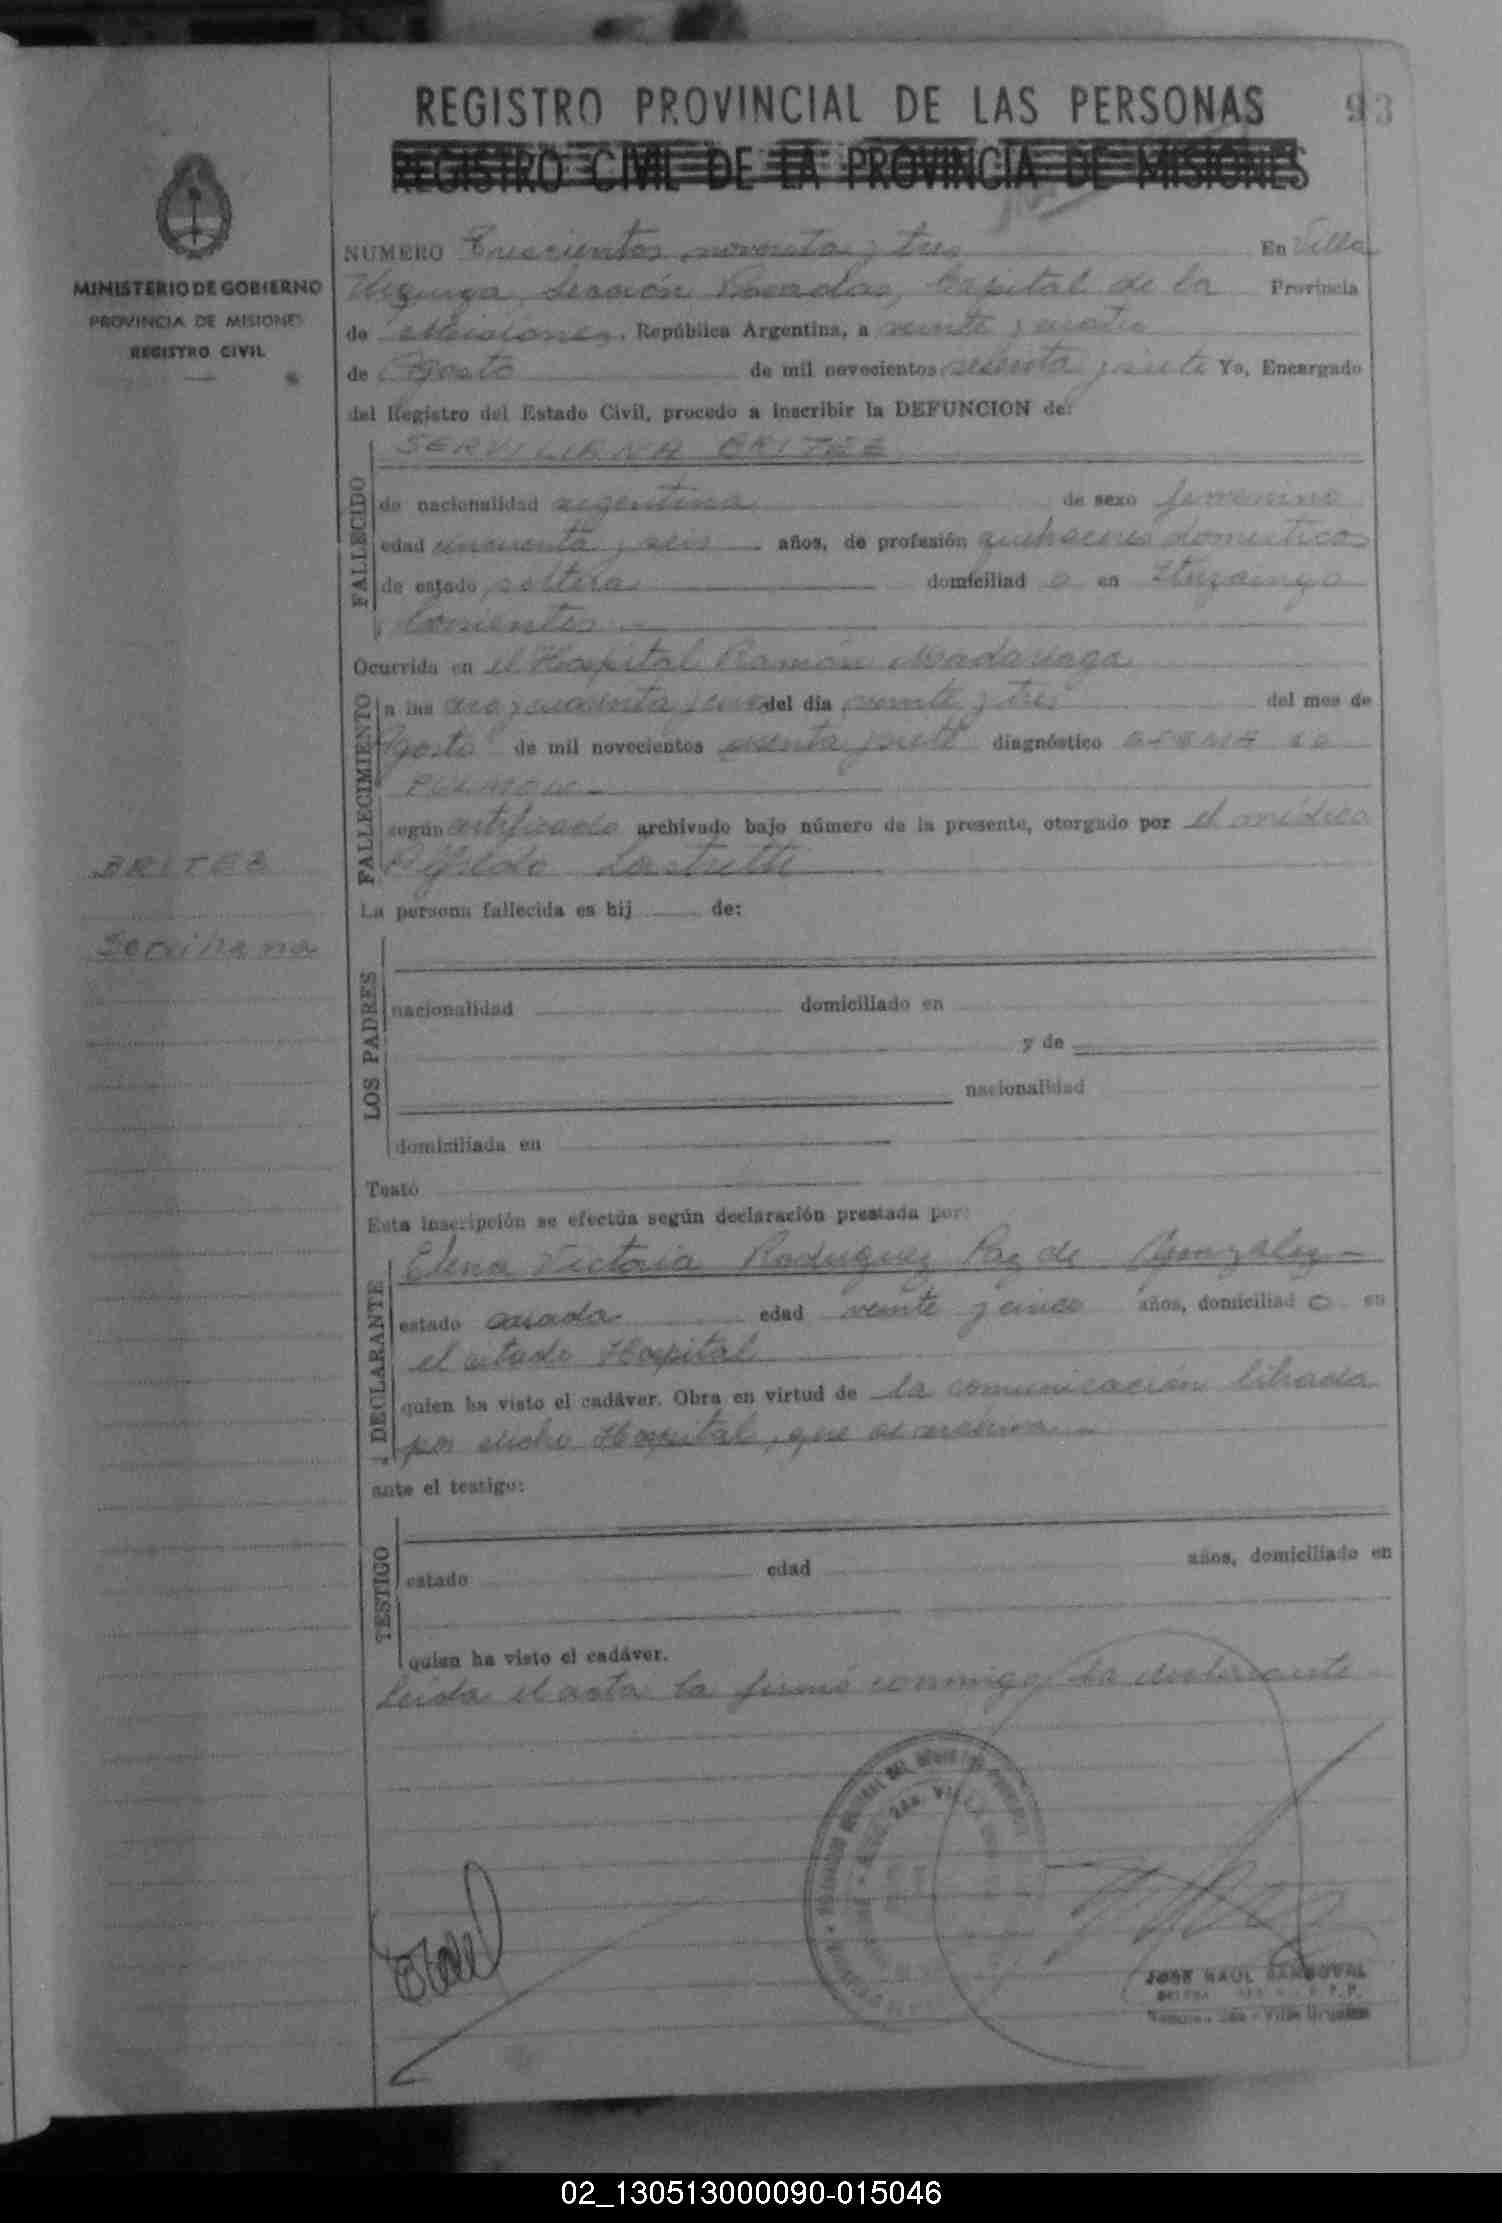 REGISTRO PROVINCIAL DE LAS PERSONAS
93
REGISTRO CIVIL DE LA PROVINCIA DE MISIONES
MINISTERIO DE GOBIERNO
PROVINCIA DE MISIONES
REGISTRO CIVIL
NUMERO Trescientos noventa y tres En Villa
Urquiza, Sección Posadas, Capital de la Provincia
de Misiones, República Argentina, a veinte y cuatro
de Agosto de mil novecientos setenta y siete Yo, Encargado
del Registro del Estado Civil, procedo a inscribir la DEFUNCION de:
FALLECIDO
SERVILIANA BRITEZ
de nacionalidad argentina de sexo femenino
edad cincuenta y seis años, de profesión quehaceres domesticos
de estado soltera domiciliad a en Ituzaingo
Corrientes
FALLECIMIENTO
Ocurrida en el Hospital Ramón Madariaga
a las y cuarenta y del día veinte y tres del mes de
Agosto de mil novecientos setenta y siete diagnóstico
PULMON
según certificado archivado bajo número de la presente, otorgado por el médico
Alfredo
BRITEZ
Serviliana
La persona fallecida es hij de:
LOS PADRES
nacionalidad domiciliado en
y de
nacionalidad
domiciliada en
Testó
Esta inscripción se efectúa según declaración prestada por:
DECLARANTE
Elena Victoria Rodriguez Paz de Gonzalez
estado casada edad veinte y cinco años, domiciliad o en
el citado Hospital
quien ha visto el cadáver. Obra en virtud de la comunicación librada
por dicho Hospital, que se archiva
ante el testigo:
TESTIGO
estado edad años, domiciliado en
quien ha visto el cadáver.
Leida el acta la firmó conmigo la declarante
JOSE RAUL SANDOVAL
Villa Urquiza
02_130513000090-015046